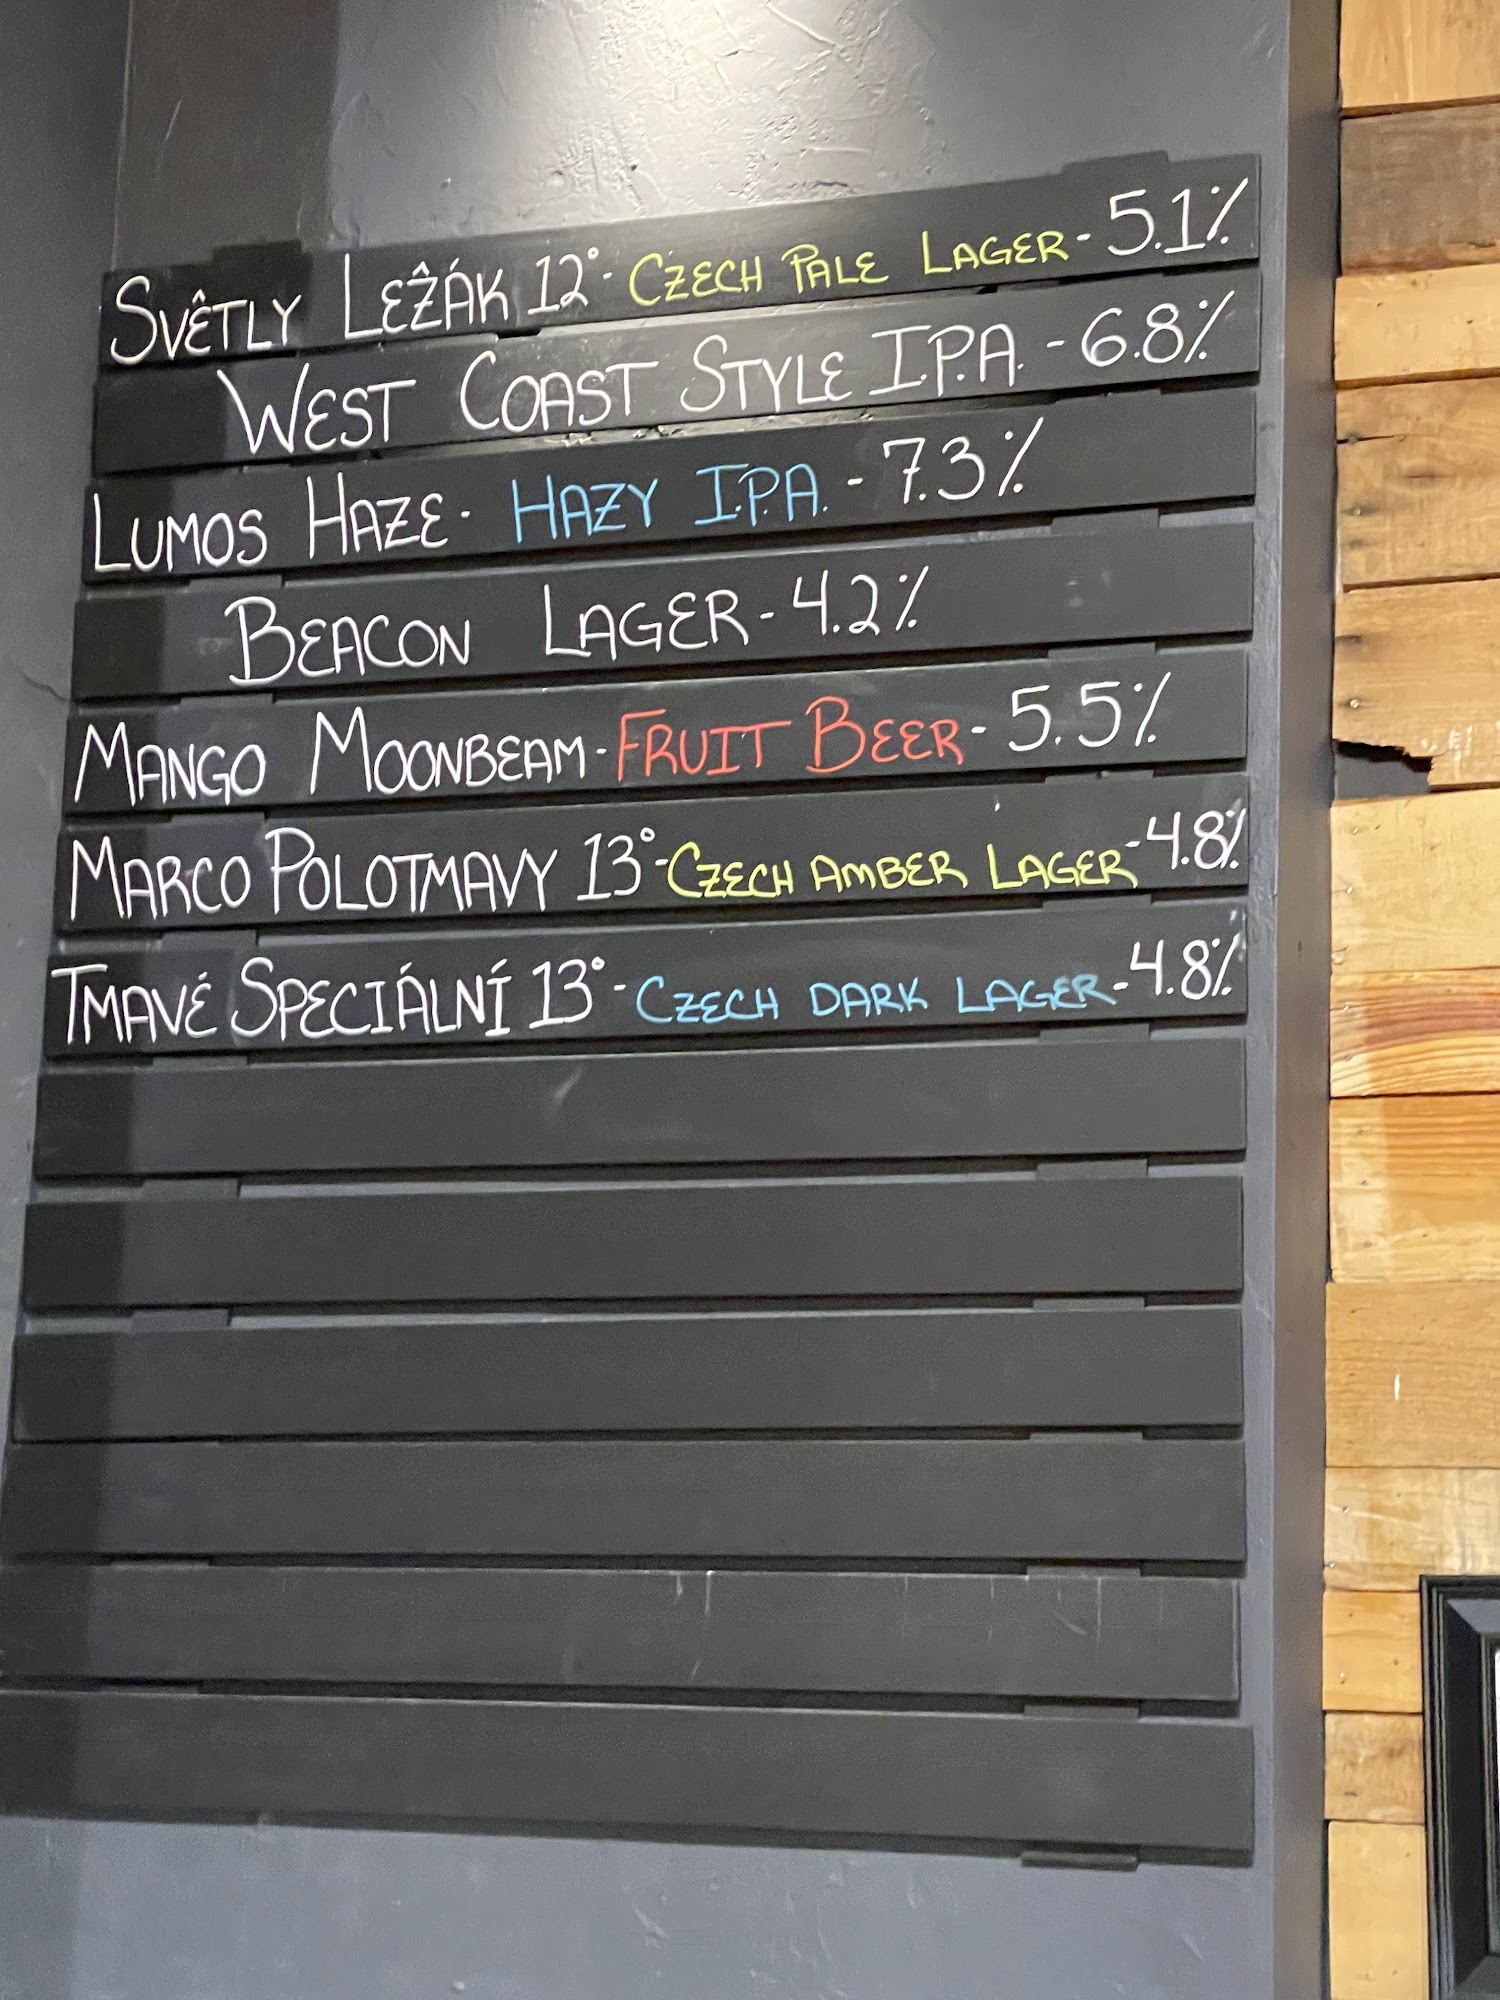 SVÊTLY LEŽÁK 12° - CZECH PALE LAGER - 5.1%
WEST COAST STYLE I.P.A. - 6.8%
LUMOS HAZE - HAZY I.P.A. - 7.3%
BEACON LAGER - 4.2%
MANGO MOONBEAM - FRUIT BEER - 5.5%
MARCO POLOTMAVY 13° - CZECH AMBER LAGER - 4.8%
TMAVÉ SPECIÁLNÍ 13° - CZECH DARK LAGER - 4.8%